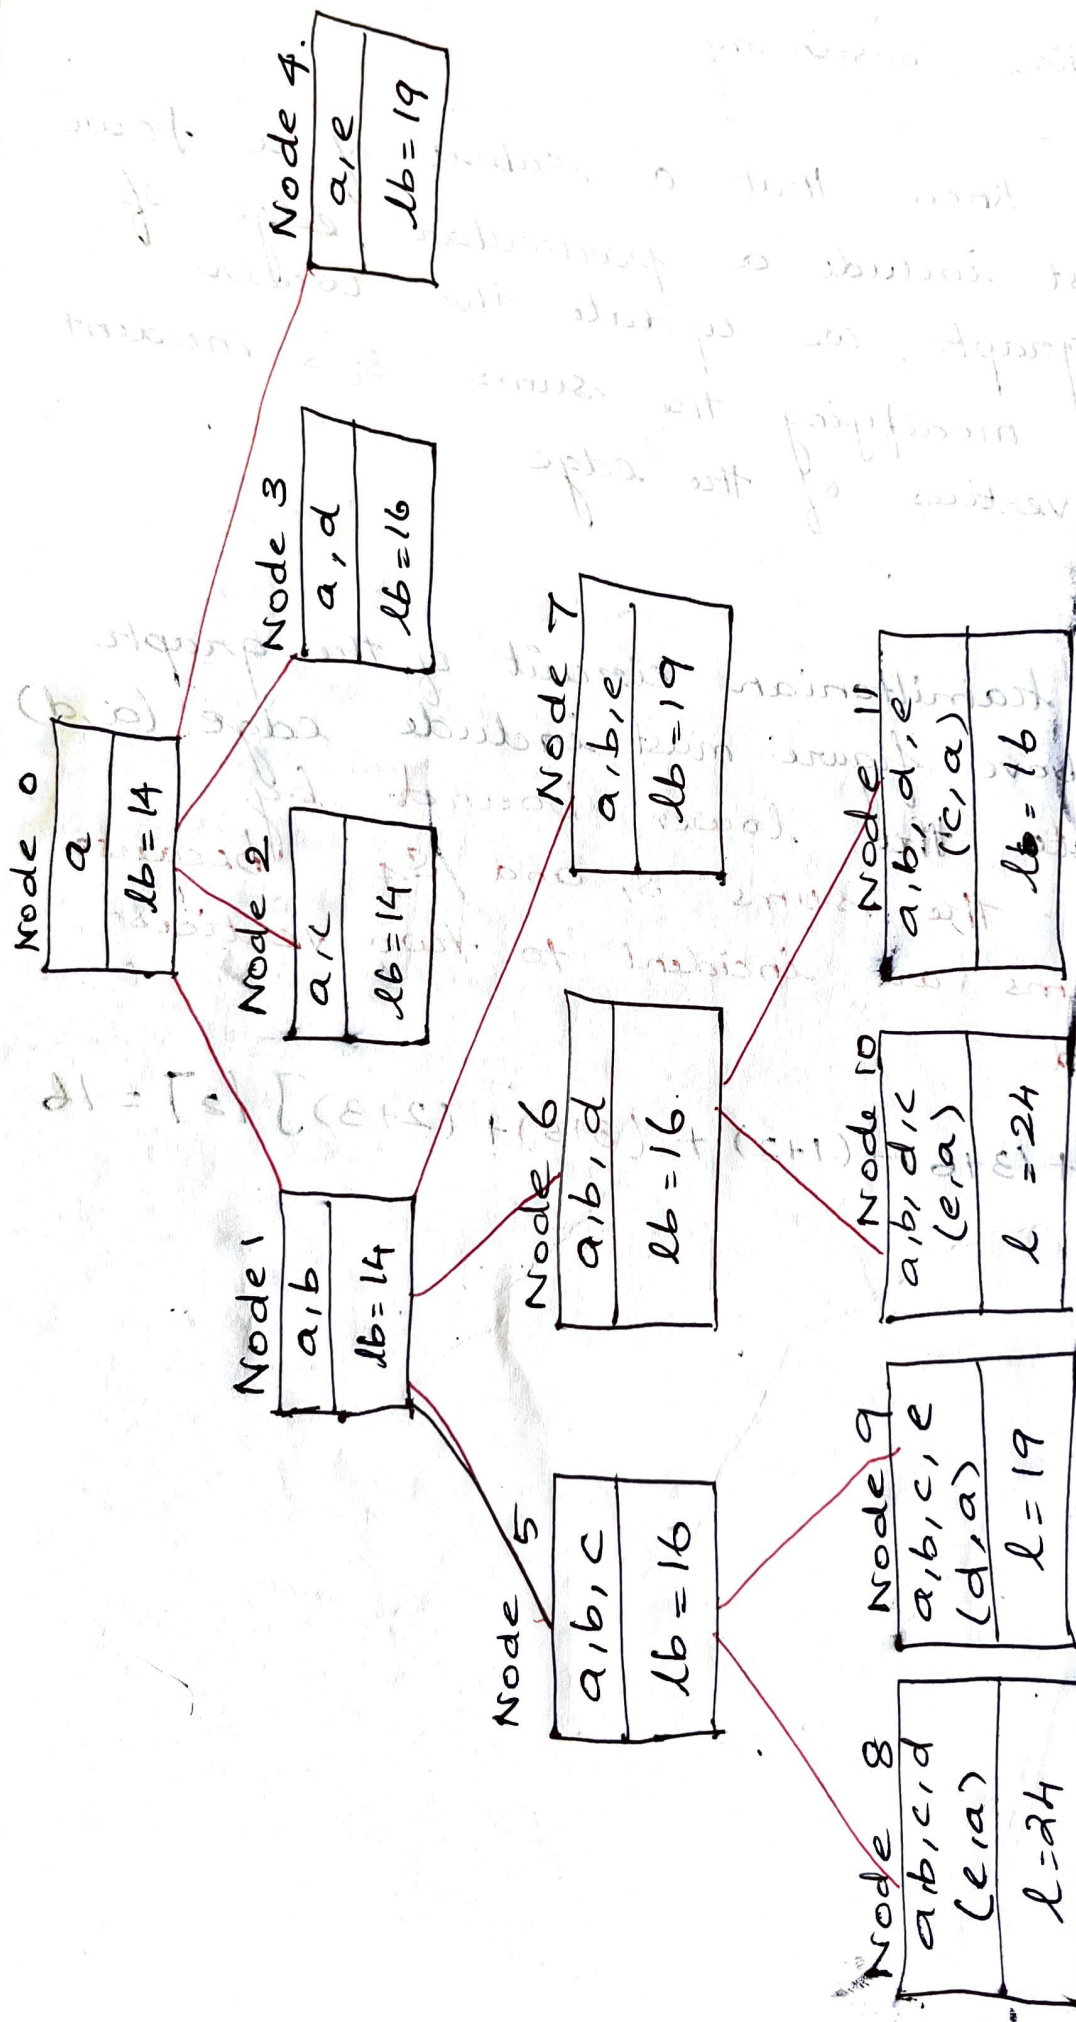 Node 0
a
lb=14
Node 1
a,b
lb=14
Node 2
a,c
lb=14
Node 3
a,d
lb=16
Node 4.
a,e
lb=19
Node 5
a,b,c
lb=16
Node 6
a,b,d
lb=16.
Node 7
a,b,e
lb=19
Node 8
a,b,c,d
(e,a)
l=24
Node 9
a,b,c,e
(d,a)
l=19
Node 10
a,b,d,c
(e,a)
l=24
Node 11
a,b,d,e
(c,a)
lb=16